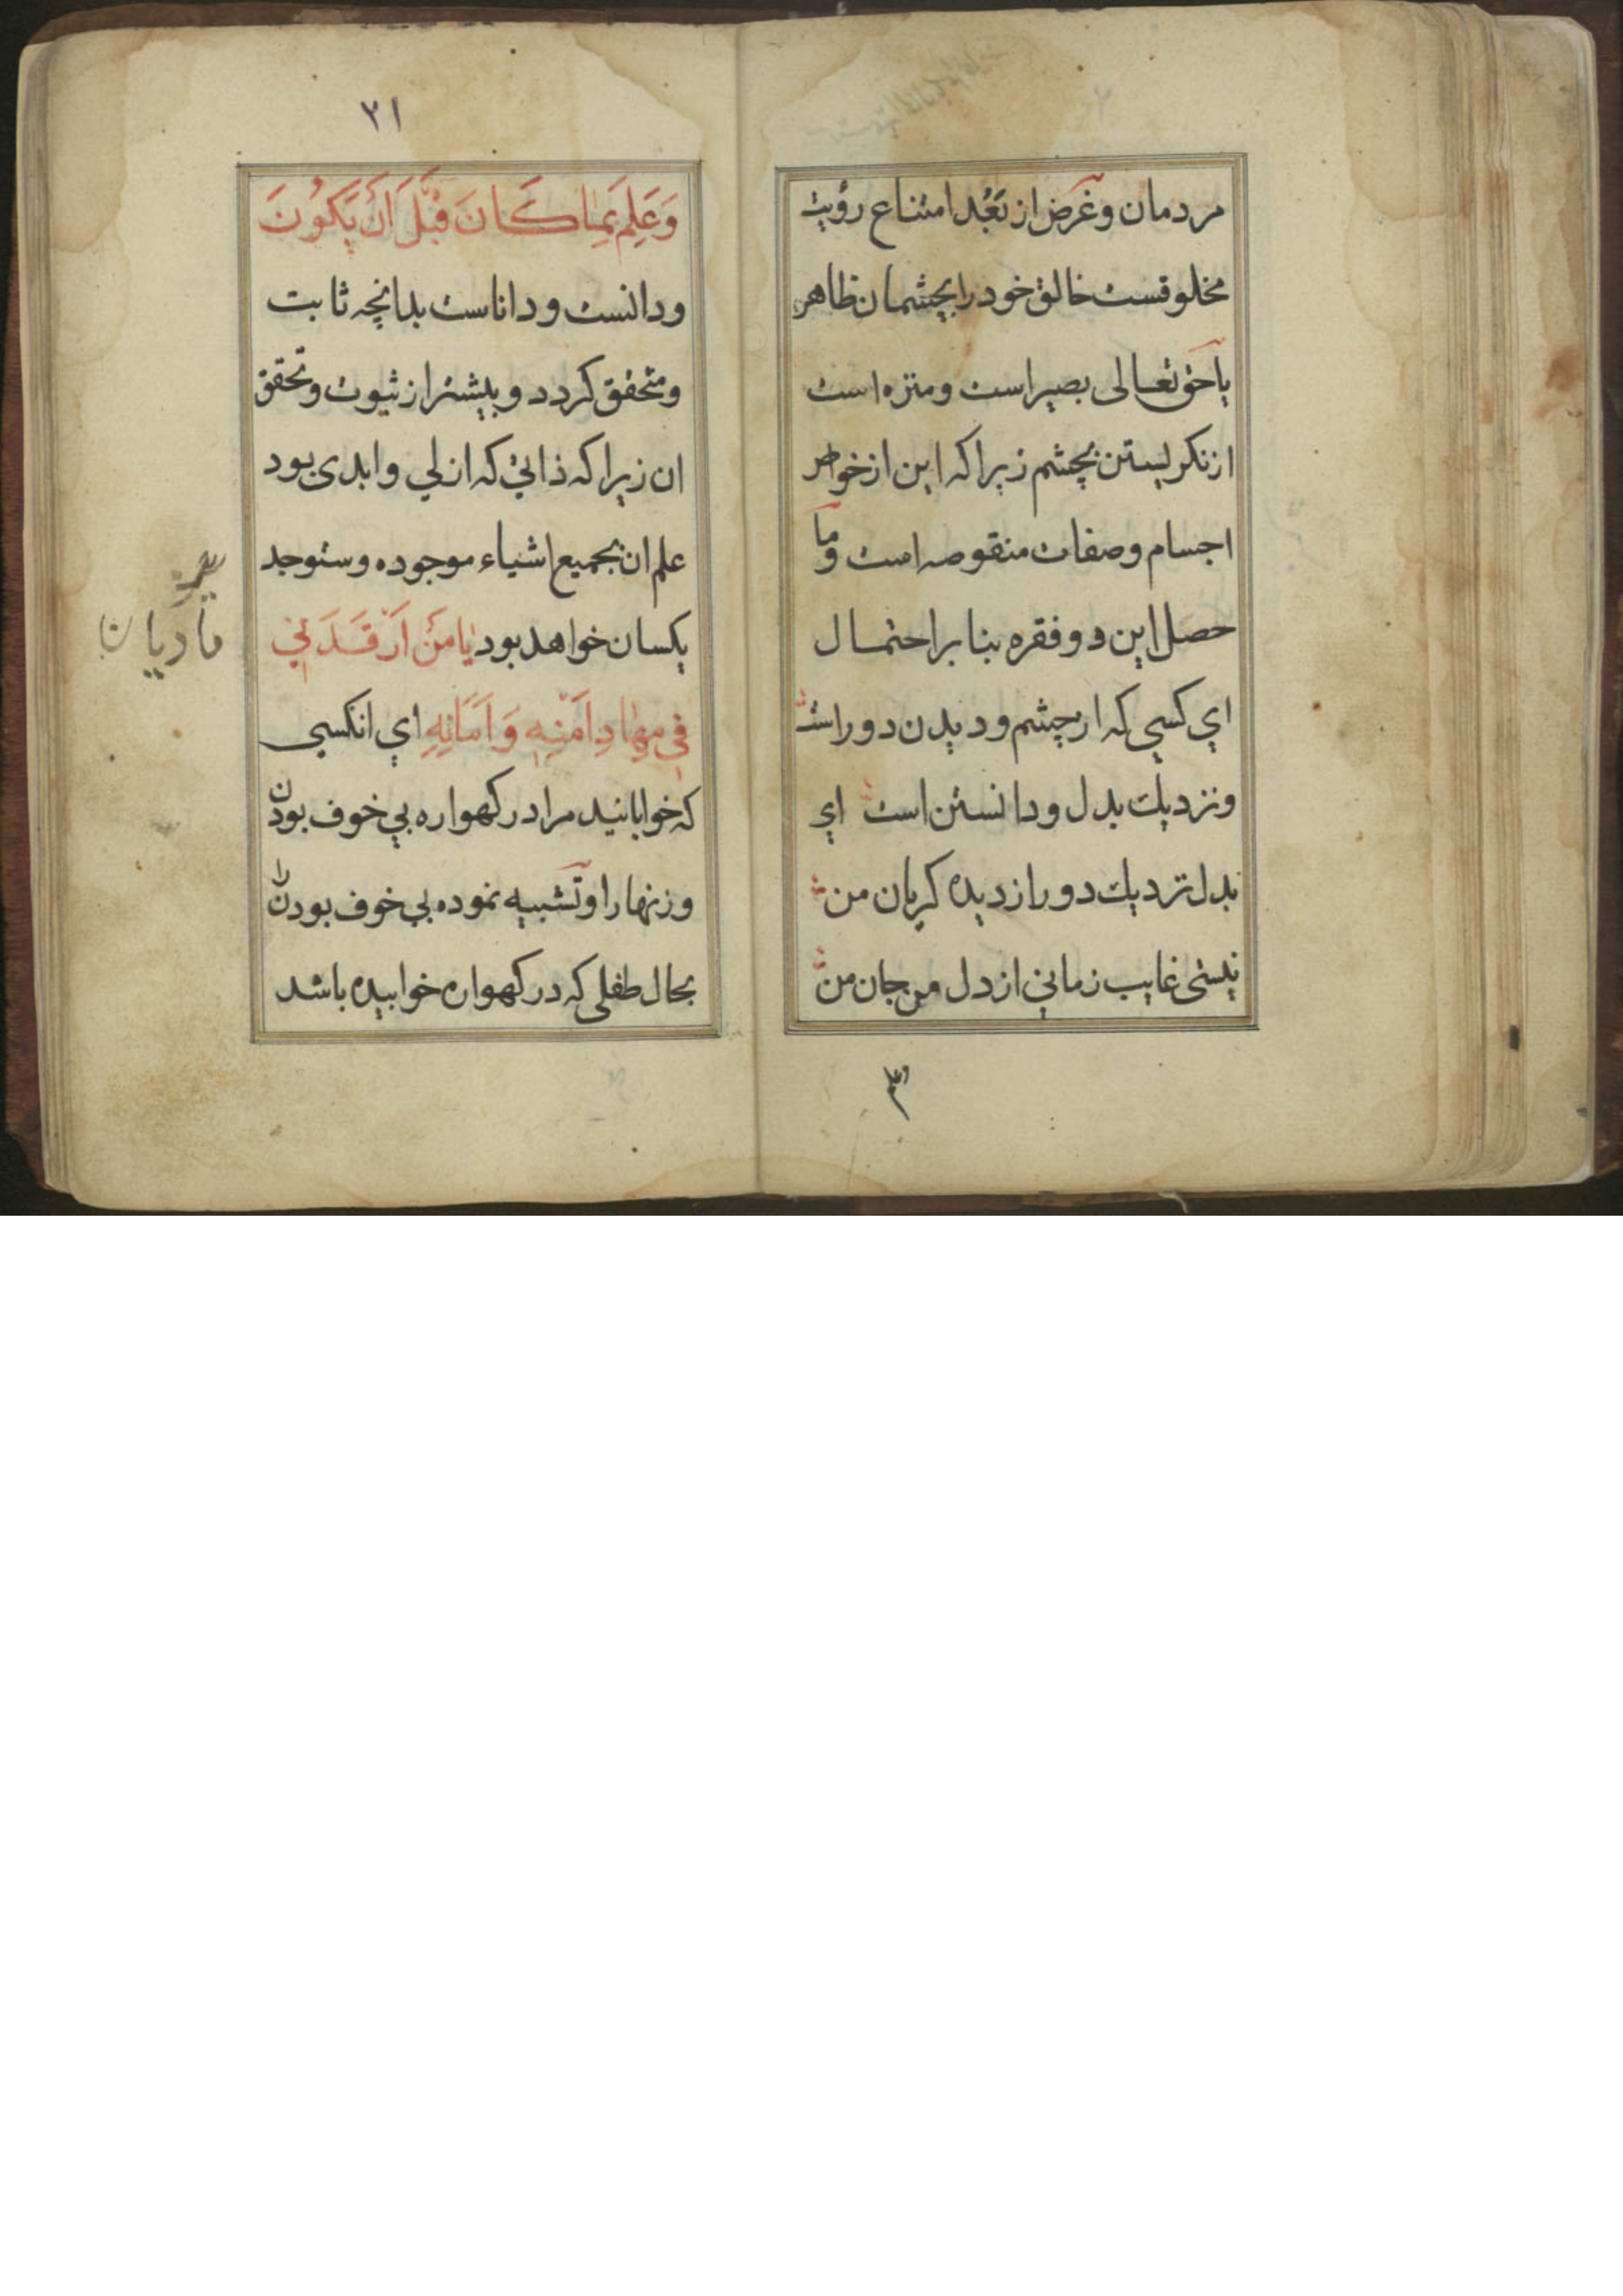 مردمان و غرض از بَعُدَ امتناع رؤیت
مخلوقست خالق خود را بچشمان ظاهر
یا حق تعالی بصیر است و منزه است
از نکریستن بچشم زیرا که این از خواص
اجسام و صفات منقوصه است و ما
حصل این دو فقره بنا بر احتمال
اي کسي که از چشم و دیدن دور است
و نزدیك بدل و دانستن است اي
بدل نزدیك دور از دیده کریان من
نیستی غایب زماني از دل من جان من
۳۱
وَعَلِمَ بِمٰا كَانَ قَبْلَ اَنْ يَكُونَ
و دانست و داناست بدانچه ثابت
و متحقق کردد و پیشتر از ثبوت و تحقق
ان زیرا که ذاتي که ازلي و ابدی بود
علم ان بجمیع اشیاء موجوده و ستوجد
یکسان خواهد بود يٰا مَنْ اَرْقَدَنِي
فِي مِهٰادِ اَمْنِهِ وَ اَمَانِهِ اي انکسی
که خوابانید مرا در کهواره بي خوف بودن
و زنهار او تشبیه نموده بي خوف بودن را
بحال طفلی که در کهواره خوابیده باشد
مادیان